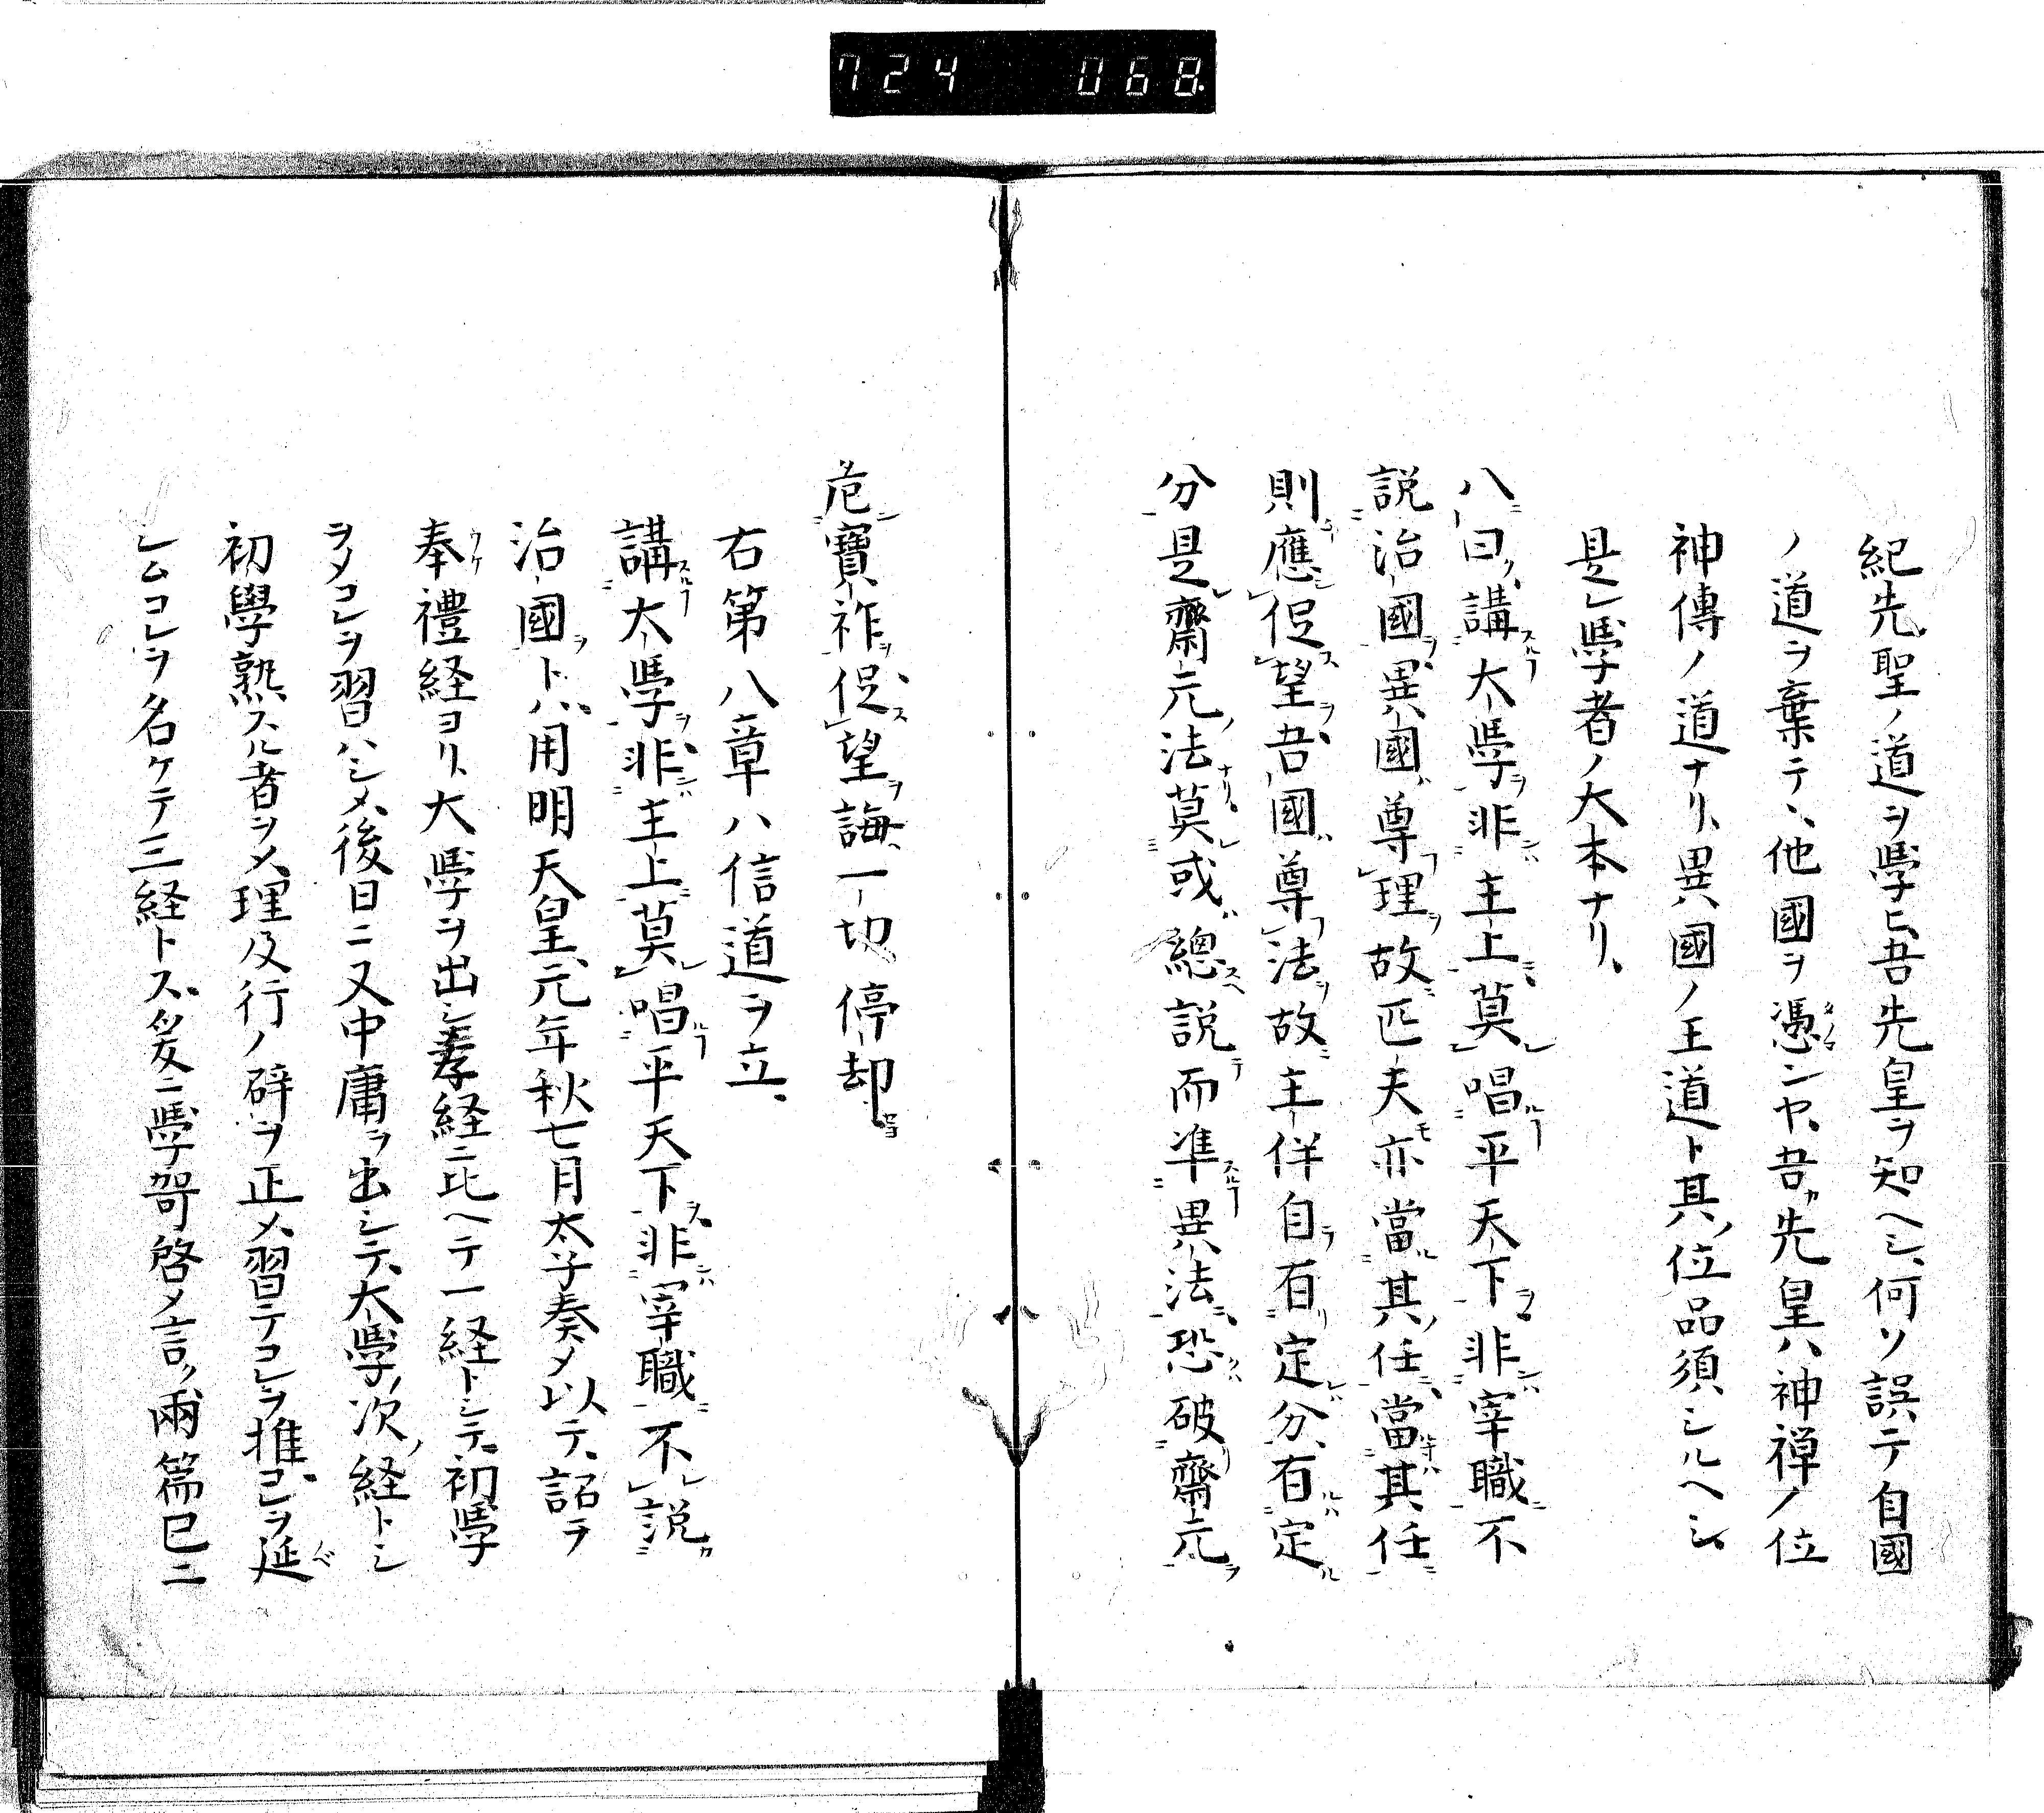 724 068
紀先聖ノ道ヲ學ヒ、吾先皇ヲ知ヘシ、何ソ誤テ自國
ノ道ヲ棄テヽ、他國ヲ憑ンヤ、吾カ先皇ハ神禅ノ位
神傳ノ道ナリ、異國ノ王道ト其ノ位品須シルヘシ、
是レ學者ノ大本ナリ、
八曰、講大學非主上莫唱平天下非宰職不
説治國異國尊理故匹夫亦當其任當其任
則應促望吾國尊法故主伴自有定分有定
分是齋元法莫或總説而準異法恐破齋元
危寶祚促望誨一切停却
右第八章ハ信道ヲ立、
講大學非主上莫唱平天下非宰職不説
治國トハ、用明天皇元年秋七月太子奏メ以テ、詔ヲ
奉禮経ヨリ、大學ヲ出シ孝経ニ比ヘテ一経トシテ、初學
ヲメコレヲ習ハシメ、後日ニ又中庸ヲ出シテ、大學ノ次ノ経トシ
初學熟スル者ヲメ、理及行ノ辟ヲ正メ、習テコレヲ推コレヲ延
レムコレヲ名ケテ三経トス、爰ニ學哿啓メ言ク、兩篇已ニ